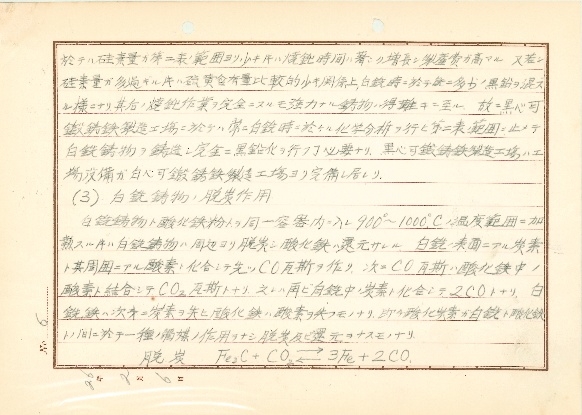 於テハ硅素量ガ第二表ノ範囲ヨリ少キキハ燒鈍時間ハ著シク増長シ製産費ガ高マル 又若シ
硅素量ガ多過ギルキハ硫黄含有量比較的少キ関係上,白銑時ニ於テ既ニ多少ノ黒鉛ヲ混ズ
ル様ニナリ其后ノ燒鈍作業ヲ完全ニスルモ強力ナル鋳物ハ得難キニ至ル. 故ニ黒心可
鍛鋳鉄製造工場ニ於テハ常ニ白銑時ニ於ケル化学分析ヲ行ヒ第二表範囲ニ止メテ
白銑鋳物ヲ鋳造シ完全ニ黒鉛化ヲ行フ必要ナリ. 黒心可鍛鋳鉄製造工場ハ工
場設備ガ白心可鍛鋳鉄製造工場ヨリ完備シ居レリ.
(3) 白銑鋳物ノ脱炭作用
白銑鋳物ト酸化鉄粉トヲ同一容器内ニ入レ900°~1000°Cノ温度範囲ニ加
熱スルキハ白銑鋳物ハ周辺ヨリ脱炭シ酸化鉄ハ還元サレル. 白銑ノ表面ニアル炭素
ト其周囲ニアル酸素ト化合シテ先ヅCO瓦斯ヲ作リ. 次ニCO瓦斯ハ酸化鉄中ノ
酸素ト結合シテCO₂瓦斯トナリ. 之レハ再ビ白銑中ノ炭素ト化合シテ2COトナリ. 白
銑鉄ハ次第ニ炭素ヲ失ヒ酸化鉄ハ酸素ヲ失フモノナリ. 酸化炭素ガ白銑ト酸化鉄
トノ間ニ於テ一種ノ媒ノ作用ヲナシ脱炭及ビ還元ヲナスモノナリ.
脱炭 Fe₃C + CO₂ ⇄ 3Fe + 2CO.
No. 6
26年 2月 6日